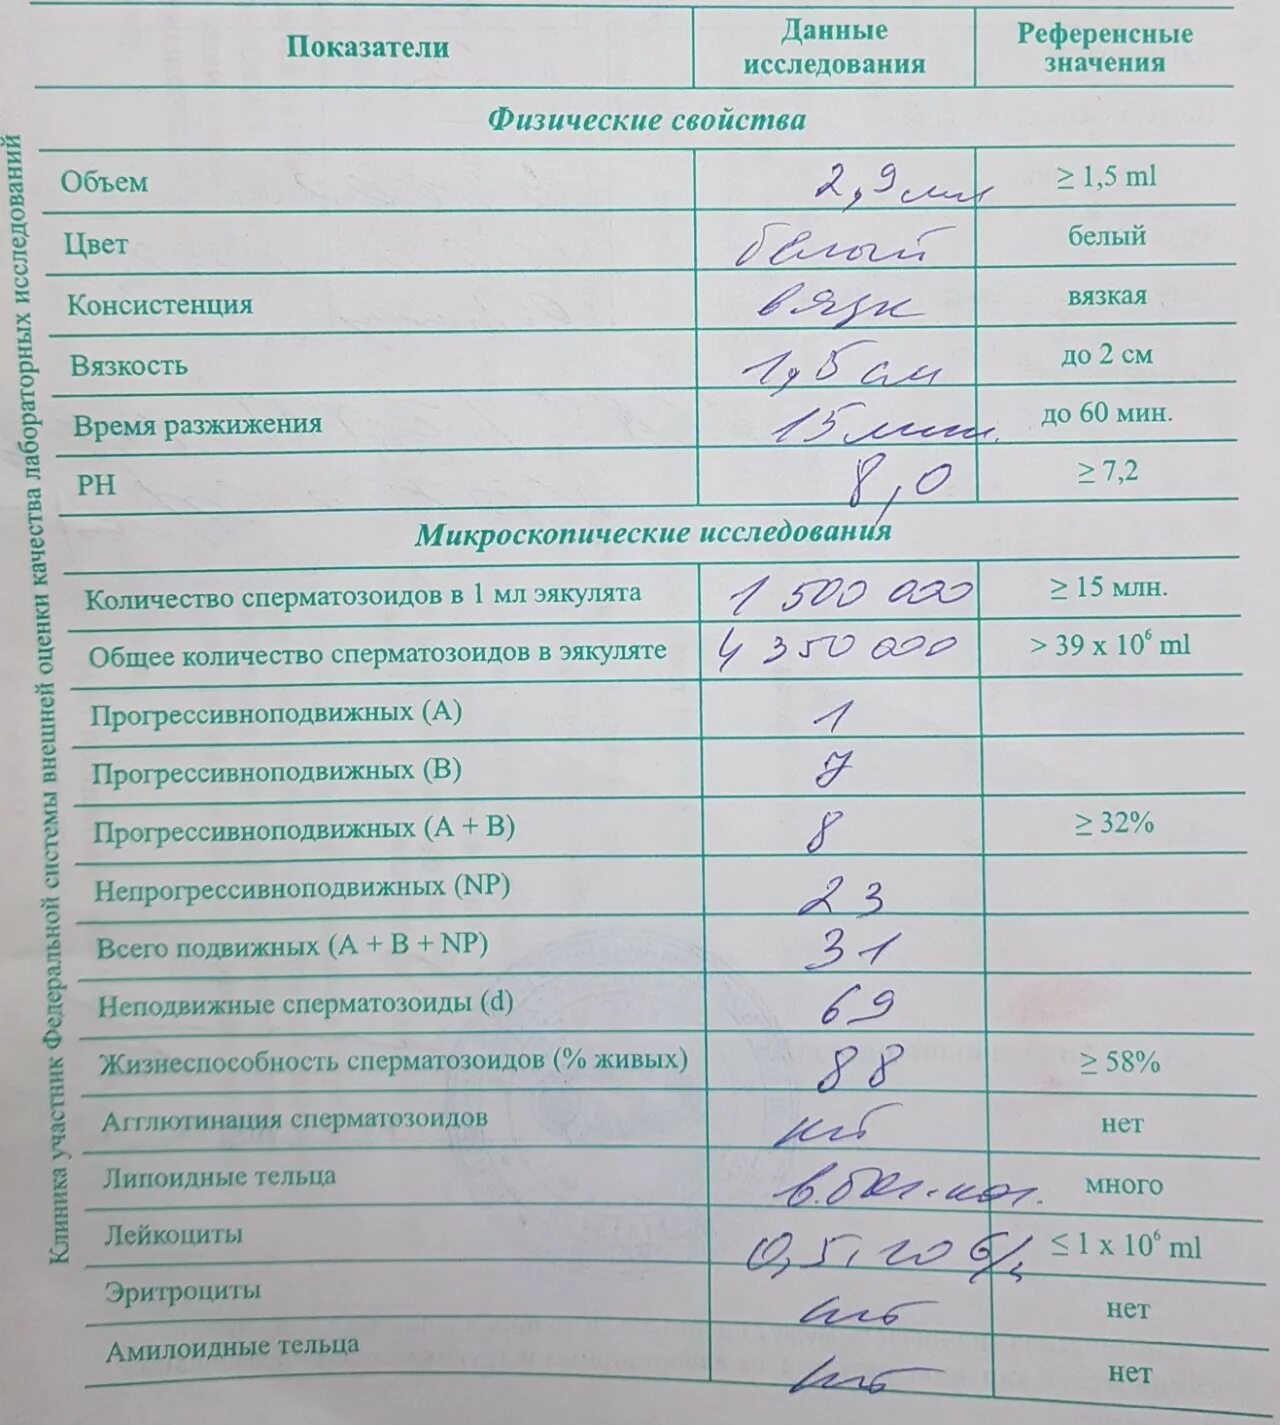 Показатели Данные исследования Референсные значения
Физические свойства
Объем 2,9 мл ≥ 1,5 ml
Цвет белый белый
Консистенция вязк вязкая
Вязкость 1,5 см до 2 см
Время разжижения 15 мин. до 60 мин.
PH 8,0 ≥ 7,2
Микроскопические исследования
Количество сперматозоидов в 1 мл эякулята 1 500 000 ≥ 15 млн.
Общее количество сперматозоидов в эякуляте 4 350 000 > 39 x 10⁶ ml
Прогрессивноподвижных (A) 1
Прогрессивноподвижных (B) 7
Прогрессивноподвижных (A + B) 8 ≥ 32%
Непрогрессивноподвижных (NP) 23
Всего подвижных (A + B + NP) 31
Неподвижные сперматозоиды (d) 69
Жизнеспособность сперматозоидов (% живых) 88 ≥ 58%
Агглютинация сперматозоидов нет нет
Липоидные тельца много
Лейкоциты ≤ 1 x 10⁶ ml
Эритроциты нет нет
Амилоидные тельца нет нет
Клиника участник Федеральной системы внешней оценки качества лабораторных исследований